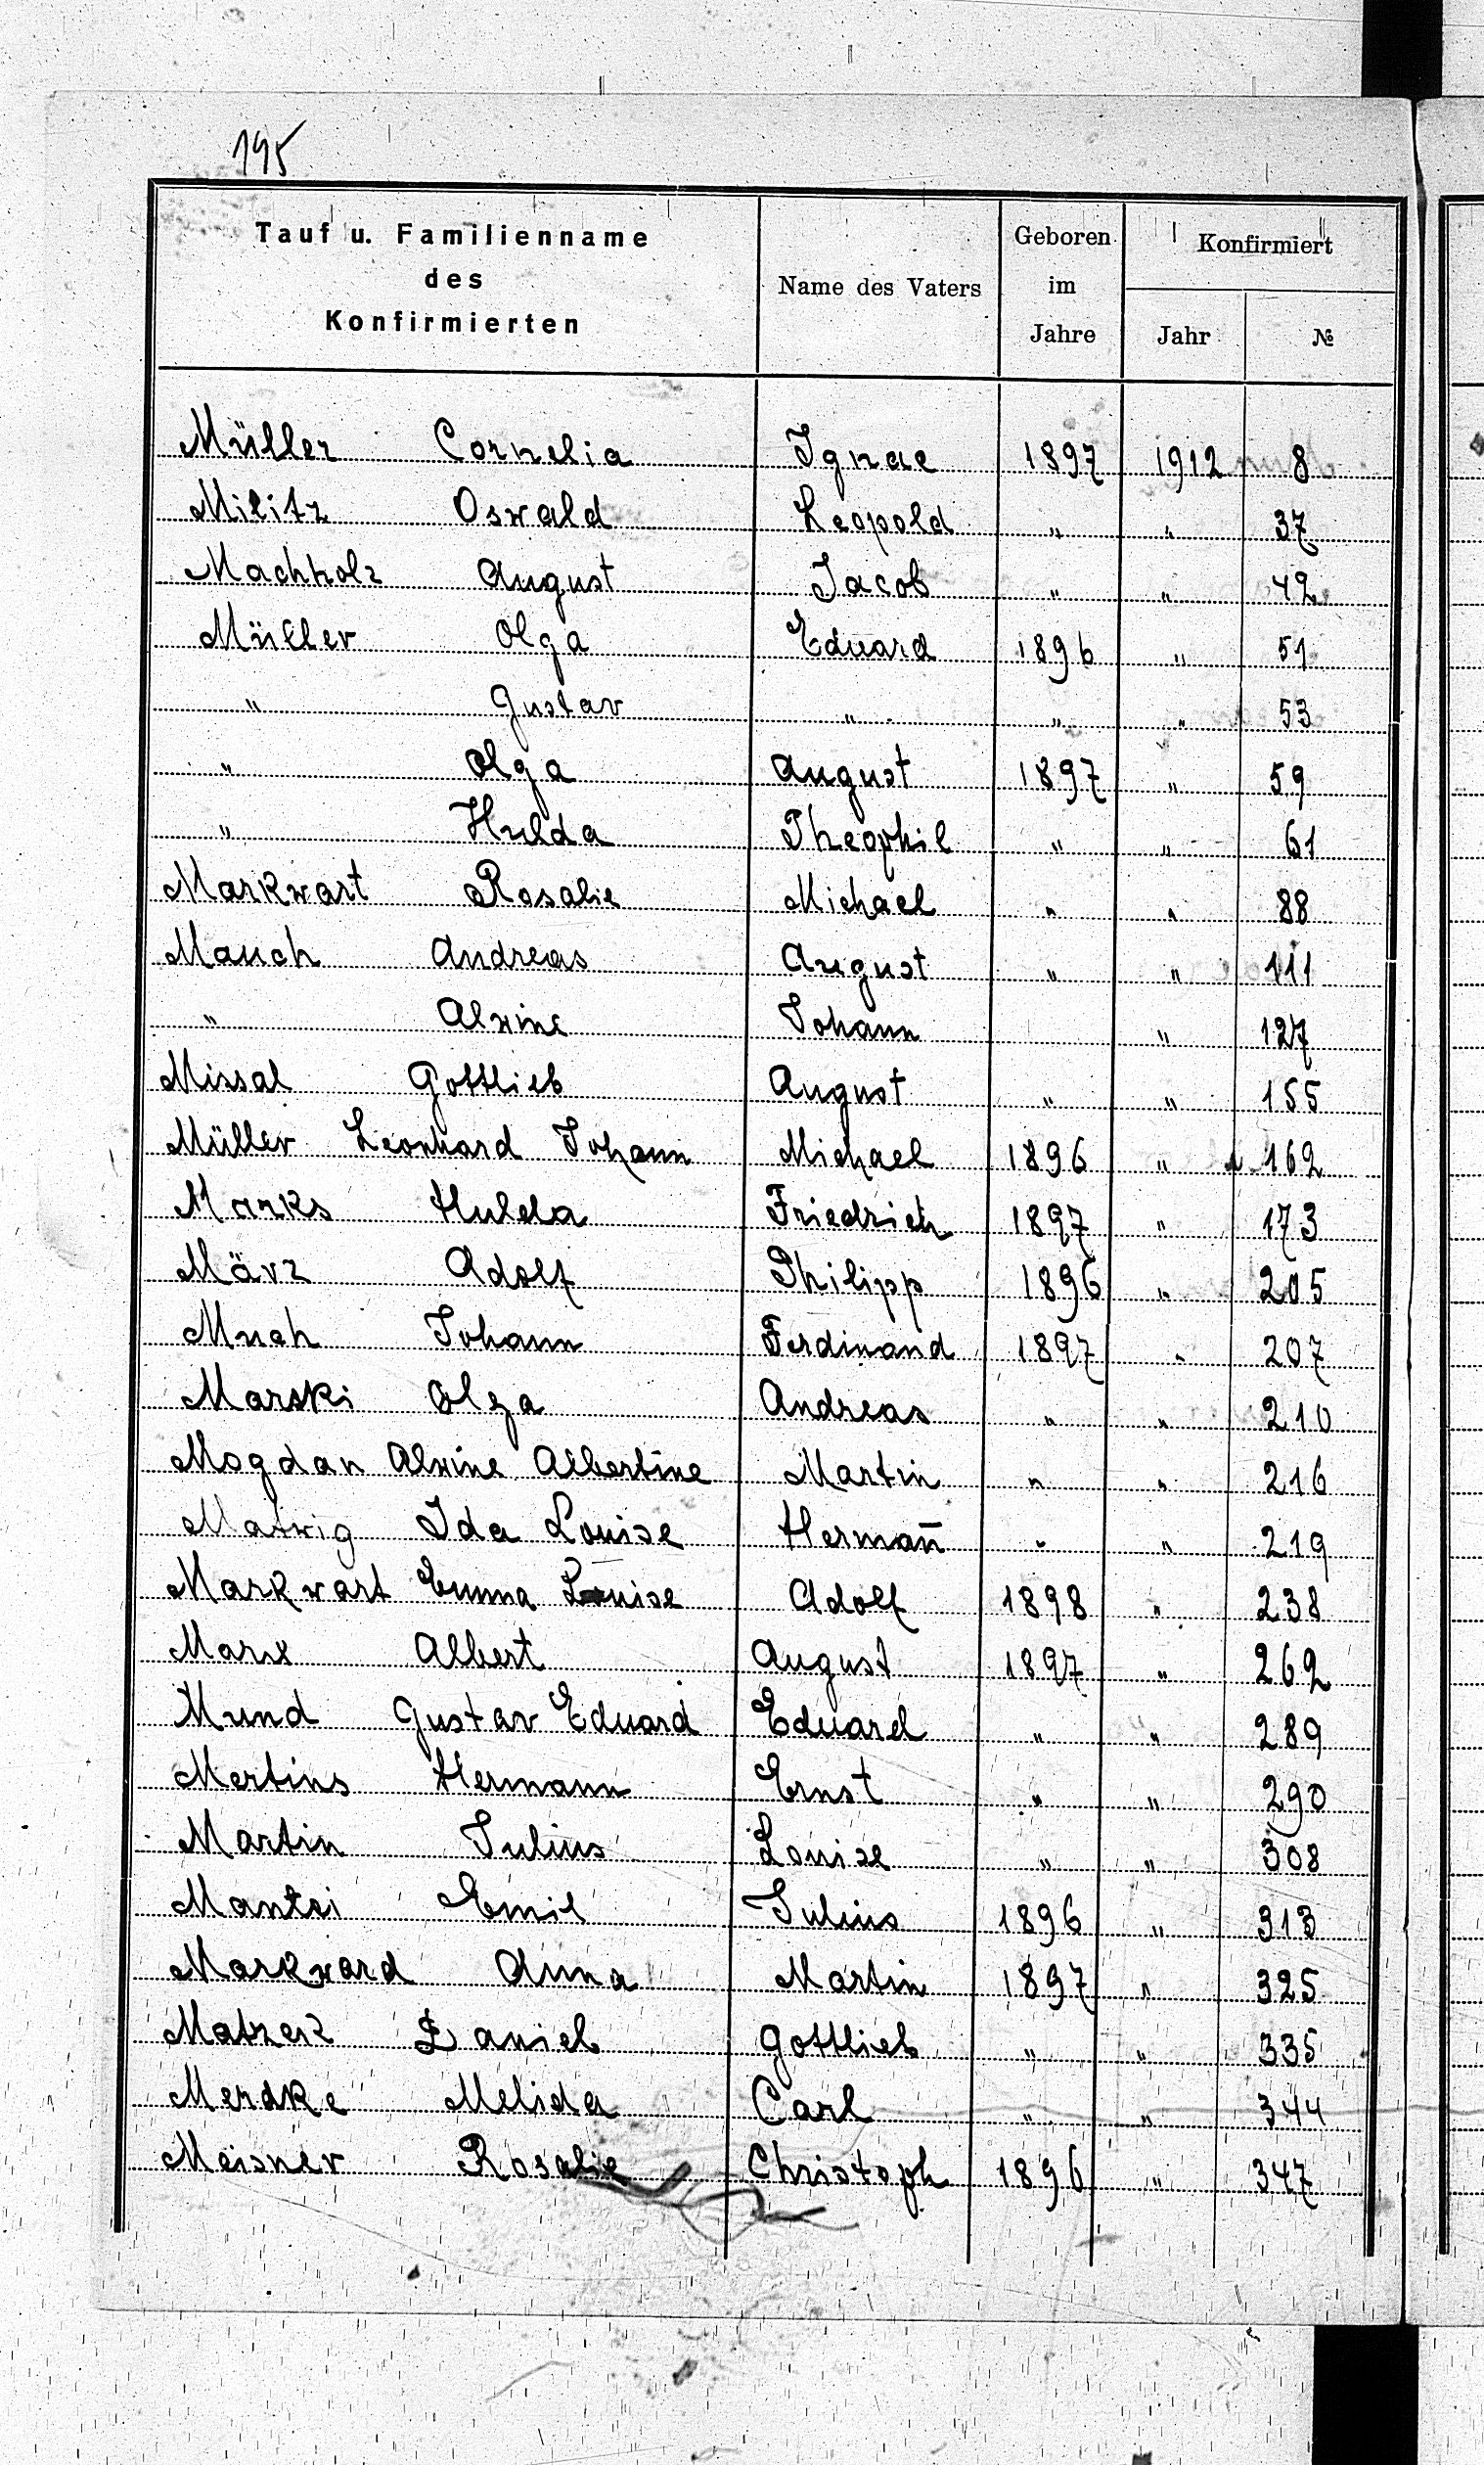 195
Tauf u. Familienname des Konfirmierten | Name des Vaters | Geboren im Jahre | Konfirmiert Jahr | №
Müller Cornelia Ignac 1897 1912 8
Militz Oswald Leopold " " 37
Machholz August Jacob " " 42
Müller Olga Eduard 1896 " 51
" Gustav " " " 53
" Olga August 1897 " 59
" Hulda Theophil " " 61
Markwart Rosalie Michael " " 88
Mauch Andreas August " " 111
" Alwine Johann " 127
Missal Gottlieb August " " 155
Müller Leonhard Johann Michael 1896 " 162
Marks Hulda Friedrich 1897 " 173
März Adolf Philipp 1896 " 205
Much Johann Ferdinand 1897 " 207
Marski Olga Andreas " " 210
Mogdan Alwine Albertine Martin " " 216
Matwig Ida Louise Herman̅ " " 219
Markwart Emma Louise Adolf 1898 " 238
Marx Albert August 1897 " 262
Mund Gustav Eduard Eduard " " 289
Mertins Hermann Ernst " " 290
Martin Julius Louise " " 308
Mantei Emil Julius 1896 " 313
Markward Anna Martin 1897 " 325
Matzerz Daniel Gottlieb " " 335
Merdke Melida Carl " " 344
Meisner Rosalie Christoph 1896 " 347